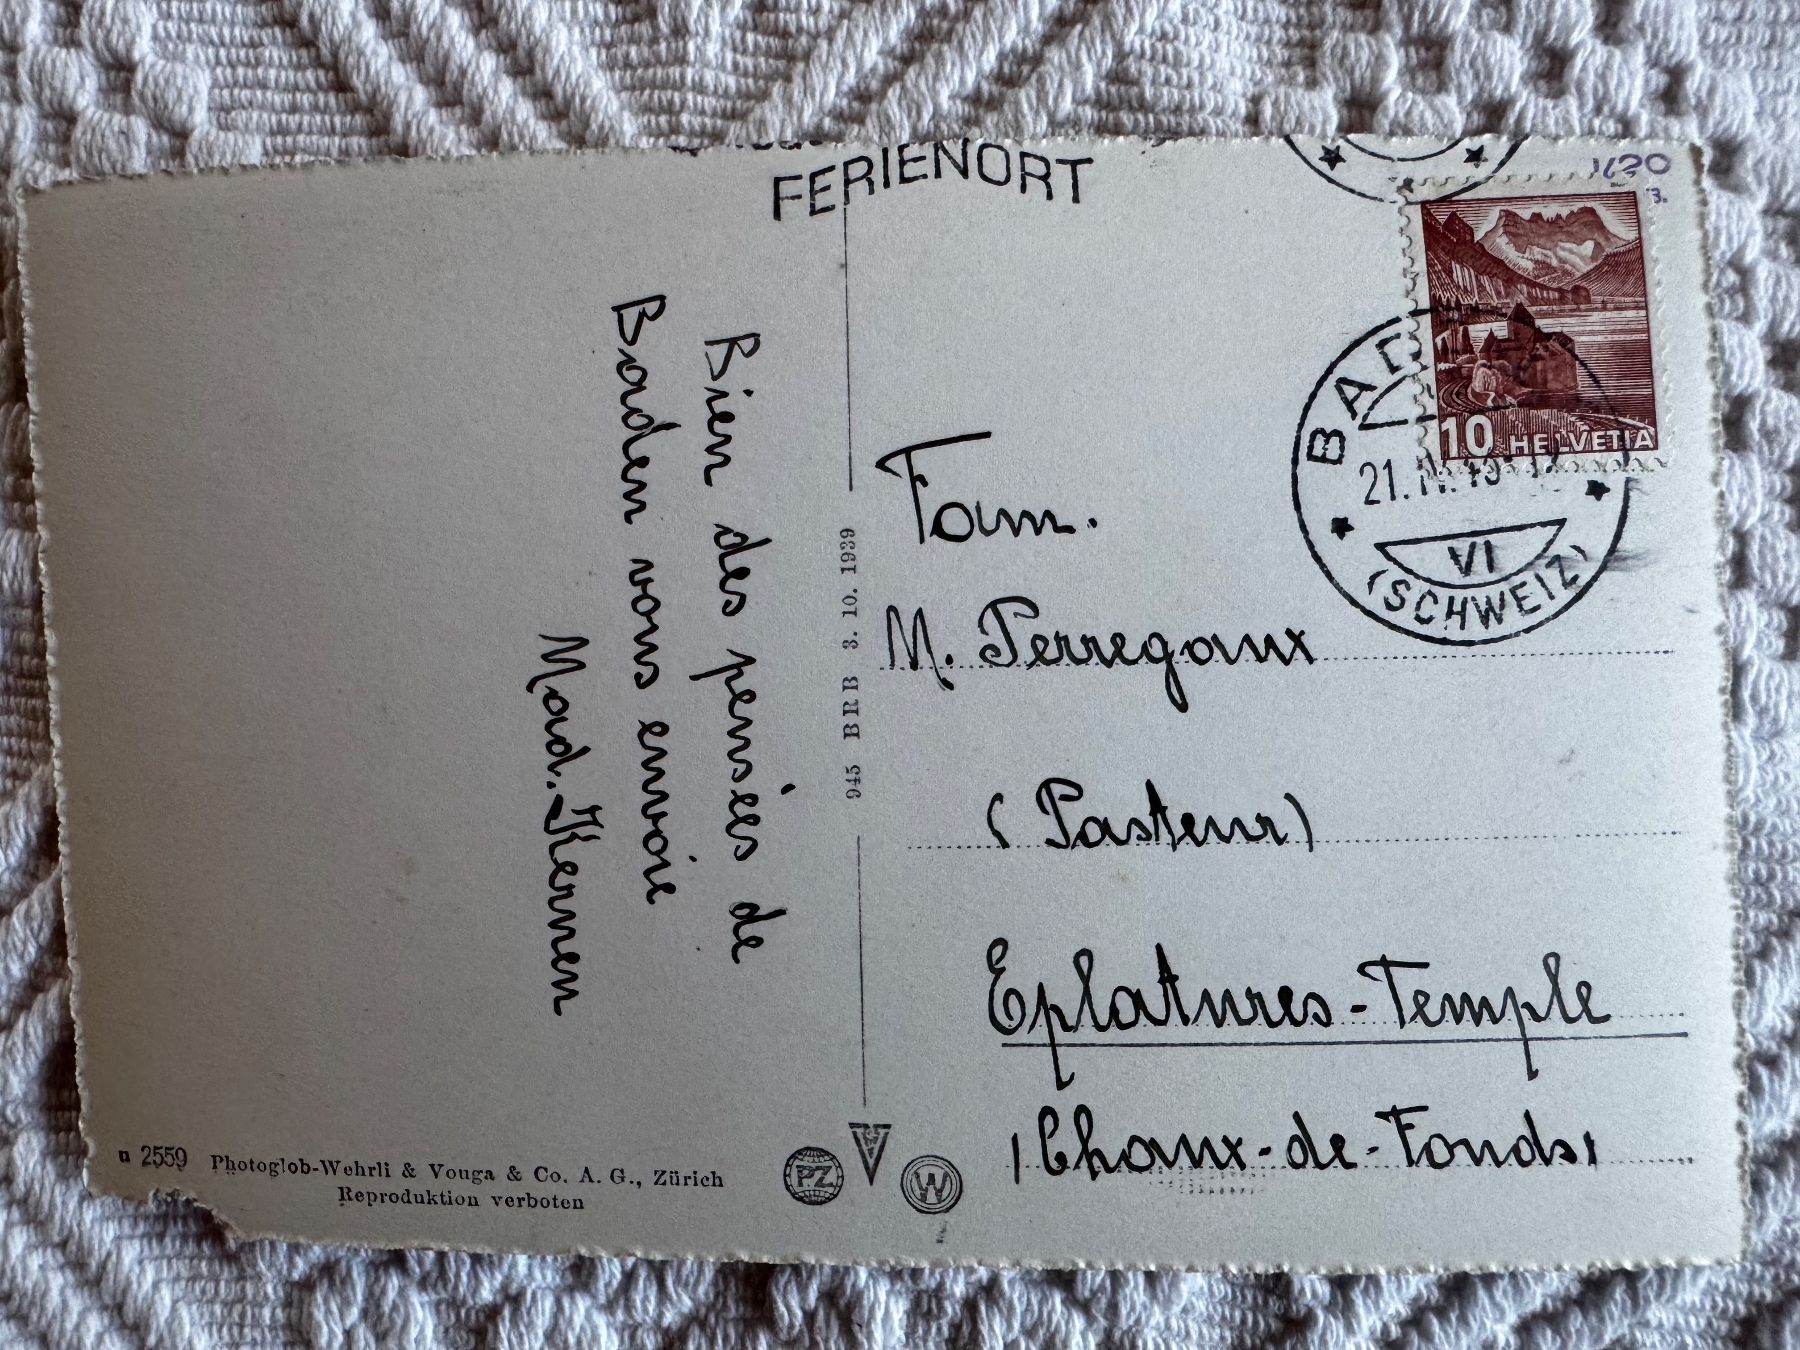 FERIENORT
BADEN
21.
VI
(SCHWEIZ)
10 HELVETIA
Bien des pensées de
Baden vous envoie
Mad. Kernen
945 BRB 3. 10. 1939
Fam.
M. Perregaux
(Pasteur)
Eplatures-Temple
(Chaux-de-Fonds)
n 2559
Photoglob-Wehrli & Vouga & Co. A. G., Zürich
Reproduktion verboten
PZ
V
W